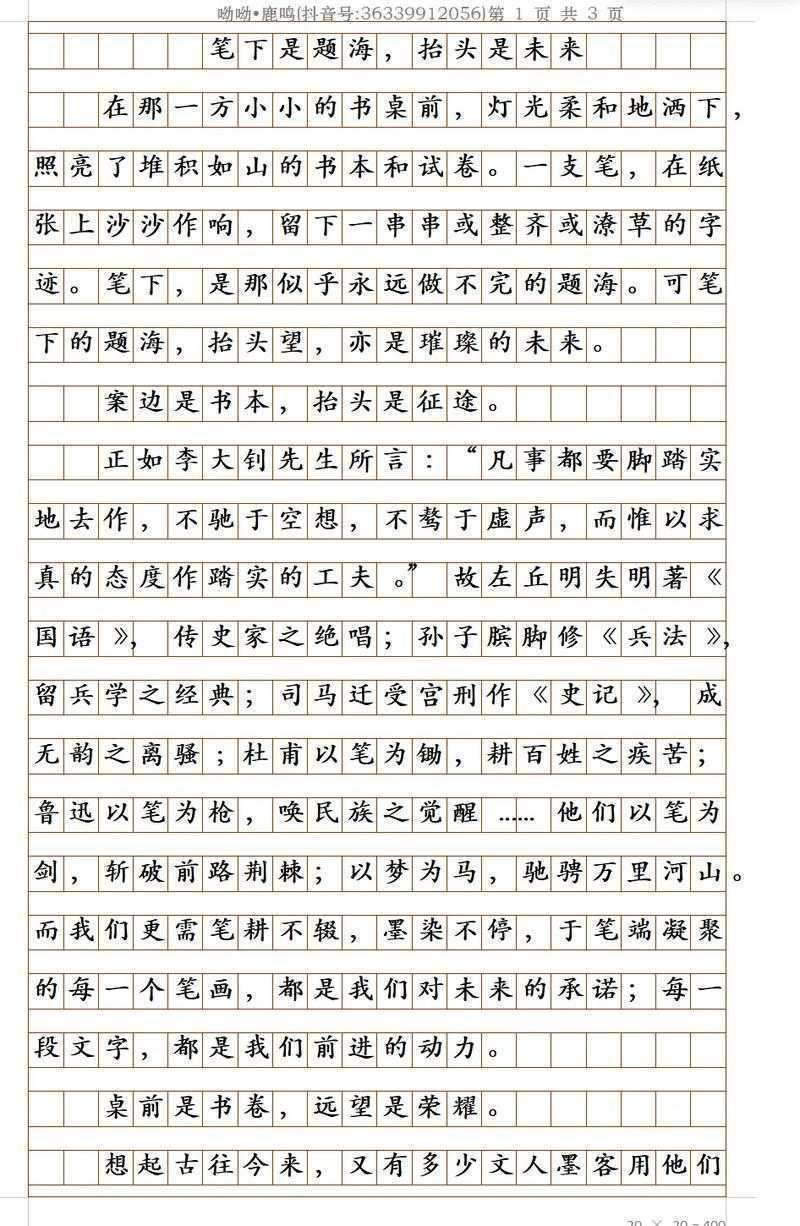 呦呦•鹿鸣(抖音号:36339912056)第 1 页 共 3 页
笔下是题海，抬头是未来
在那一方小小的书桌前，灯光柔和地洒下，
照亮了堆积如山的书本和试卷。一支笔，在纸
张上沙沙作响，留下一串串或整齐或潦草的字
迹。笔下，是那似乎永远做不完的题海。可笔
下的题海，抬头望，亦是璀璨的未来。
案边是书本，抬头是征途。
正如李大钊先生所言：“凡事都要脚踏实
地去作，不驰于空想，不骛于虚声，而惟以求
真的态度作踏实的工夫。”故左丘明失明著《
国语》，传史家之绝唱；孙子膑脚修《兵法》，
留兵学之经典；司马迁受宫刑作《史记》，成
无韵之离骚；杜甫以笔为锄，耕百姓之疾苦；
鲁迅以笔为枪，唤民族之觉醒……他们以笔为
剑，斩破前路荆棘；以梦为马，驰骋万里河山。
而我们更需笔耕不辍，墨染不停，于笔端凝聚
的每一个笔画，都是我们对未来的承诺；每一
段文字，都是我们前进的动力。
桌前是书卷，远望是荣耀。
想起古往今来，又有多少文人墨客用他们
20 × 20 = 400